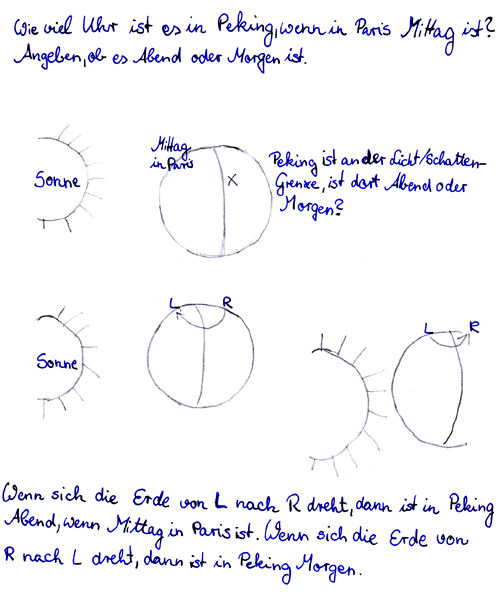 Wie viel Uhr ist es in Peking, wenn in Paris Mittag ist?
Angeben, ob es Abend oder Morgen ist.
Mittag
in Paris
Sonne
Peking ist an der Licht/Schatten-
Grenze, ist dort Abend oder
Morgen?
L R
Sonne
L R
Wenn sich die Erde von L nach R dreht, dann ist in Peking
Abend, wenn Mittag in Paris ist. Wenn sich die Erde von
R nach L dreht, dann ist in Peking Morgen.